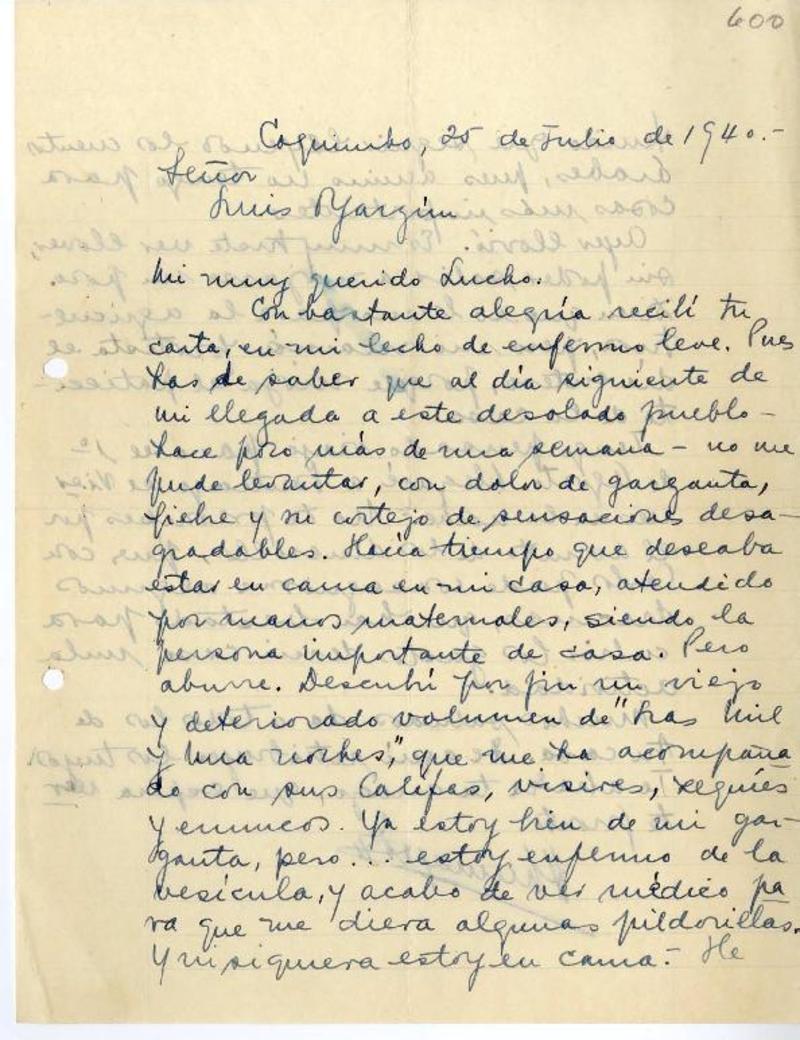 600
Coquimbo, 25 de Julio de 1940.-
Señor
Luis Oyarzún
Mi muy querido Lucho:
Con bastante alegría recibí tu
carta, en mi lecho de enfermo leve. Pues
has de saber que al día siguiente de
mi llegada a este desolado pueblo -
hace poco más de una semana - no me
pude levantar, con dolor de garganta,
fiebre y su cortejo de sensaciones desa-
gradables. Hacía tiempo que deseaba
estar en cama en mi casa, atendido
por manos maternales, siendo la
persona importante de casa. Pero
aburre. Descubrí por fin un viejo
y deteriorado volumen de "Las Mil
y Una noches," que me ha acompaña
do con sus Califas, visires, xequíes
y eunucos. Ya estoy bien de mi gar-
ganta, pero... estoy enfermo de la
vesícula, y acabo de ver médico pa
ra que me diera algunas pildorillas.
Y ni siquiera estoy en cama.- He